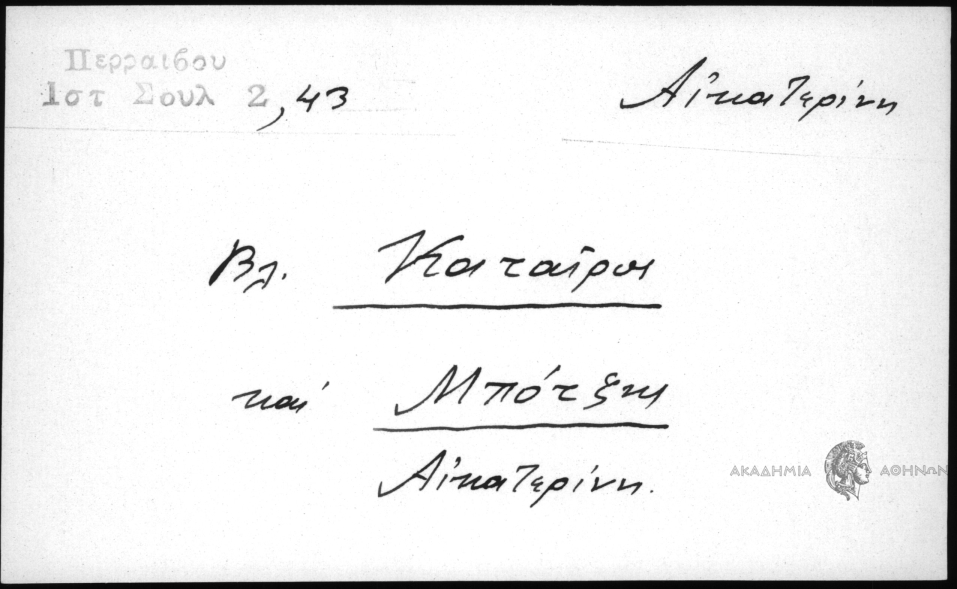 Περραιβου
Ιστ Σουλ 2, 43
Αἰκατερίνη
Βλ. Καταῖροι
καί Μπότζης
Αἰκατερίνη.
ΑΚΑΔΗΜΙΑ ΑΘΗΝΩΝ